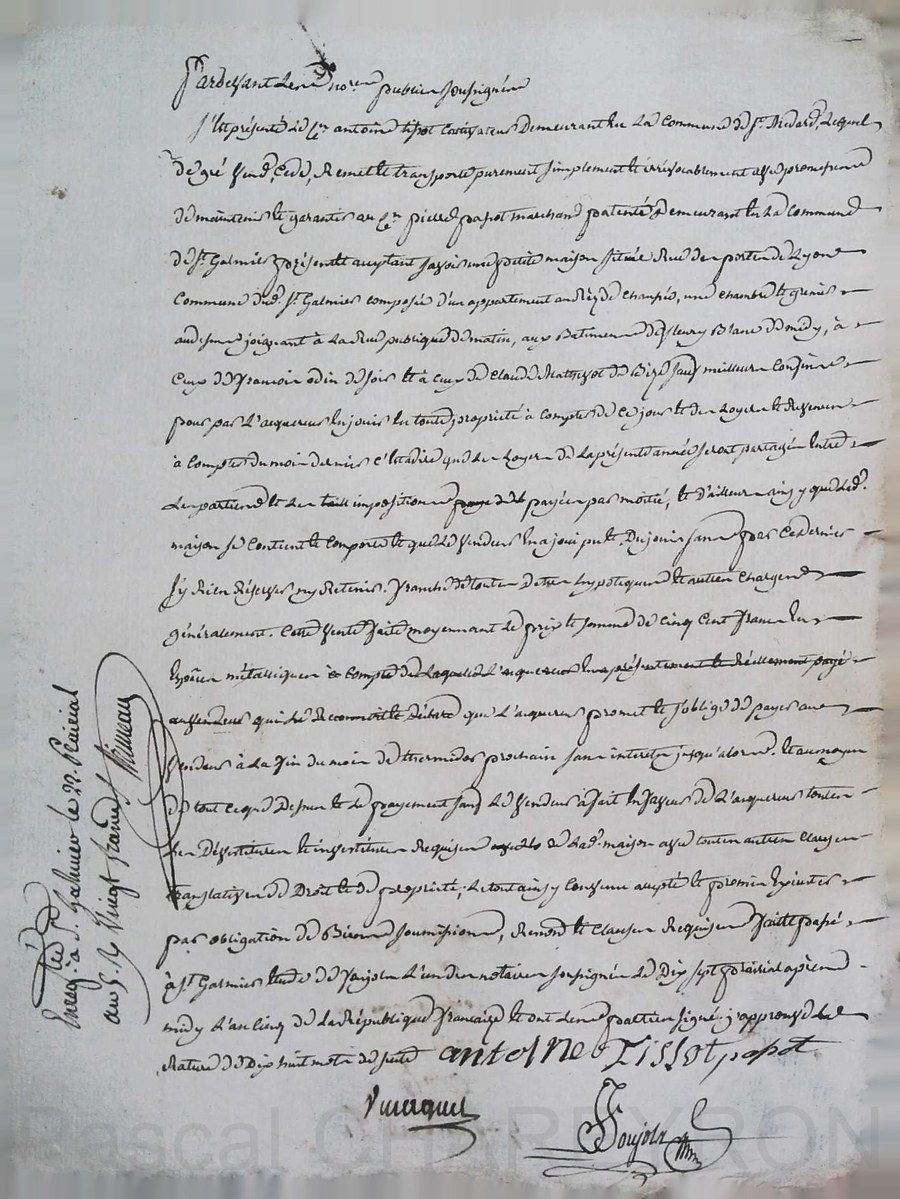 Pardevant les nres publics soussignés
S'est présenté le Cen antoine tissot cultivateur demeurant en la commune de St. Medard, lequel
de gré vend, cede, remet et transporte purement simplement et irrévocablement avec promesse
de maintenir et garantir au Cen pierre papot marchand patenté demeurant en la commune
de St. Galmier présent et acceptant savoir une petite maison située Rue des portes de Lyon
Commune dud. St. Galmier composée d'un appartement au Rèz de chaussée, une chambre et grenier
audessus joignant à La Rue publique de matin, aux Batiments de fleury Blanc de midy, à
Ceux de françois odin de soir et à ceux de Claude de Bize sauf meilleurs confins
pour par L'acquereur en jouir en toute propriété à compter de ce jour et des Loyers et Revenus
à compter du mois dernier c'est à dire que les Loyers de La présente année seront partagés entre
Les parties et les impositions payées par moitié, et d'ailleurs ainsy que lad.
maison se contient et comporte et que le vendeur en a joui pu et du jouir sans par ce dernier
s'y Rien Réserver ny Retenir. franche de toutes dettes hypotèques et autres charges
généralement. Cette vente faite moyennant le prix et somme de cinq cent francs en
Espèces métalliques à compte de laquelle L'acquereur en a présentement et Réellement payé
au vendeur qui le Reconnoit et déclare que L'acquereur promet et s'oblige de payer au
vendeur à La fin du mois de thermidor prochain sans interets jusqu'alors. et au moyen
de tout ce que Dessus et le payement sauf Le vendeur à fait en faveur de L'acquereur toutes
Les Dévestitures et investitures Requises de Lad. maison avec toutes autres clauses
translatives de Droit et de propriété; Le tout ainsy convenu accepté et promis exécuter
par obligation de Biens soumissions, Renons et clauses Requises fait et passé
à St. Galmier etude de L'un des notaires soussignés le Dix sept prairial après
midy L'an cinq de La République française et ont Les parties signé; j'approuve la
Rature de Dix huit mots de suite antoine Tissot papot
Enregé à St. Galmier le 22. Prairial
an 5. Rx Vingt francs